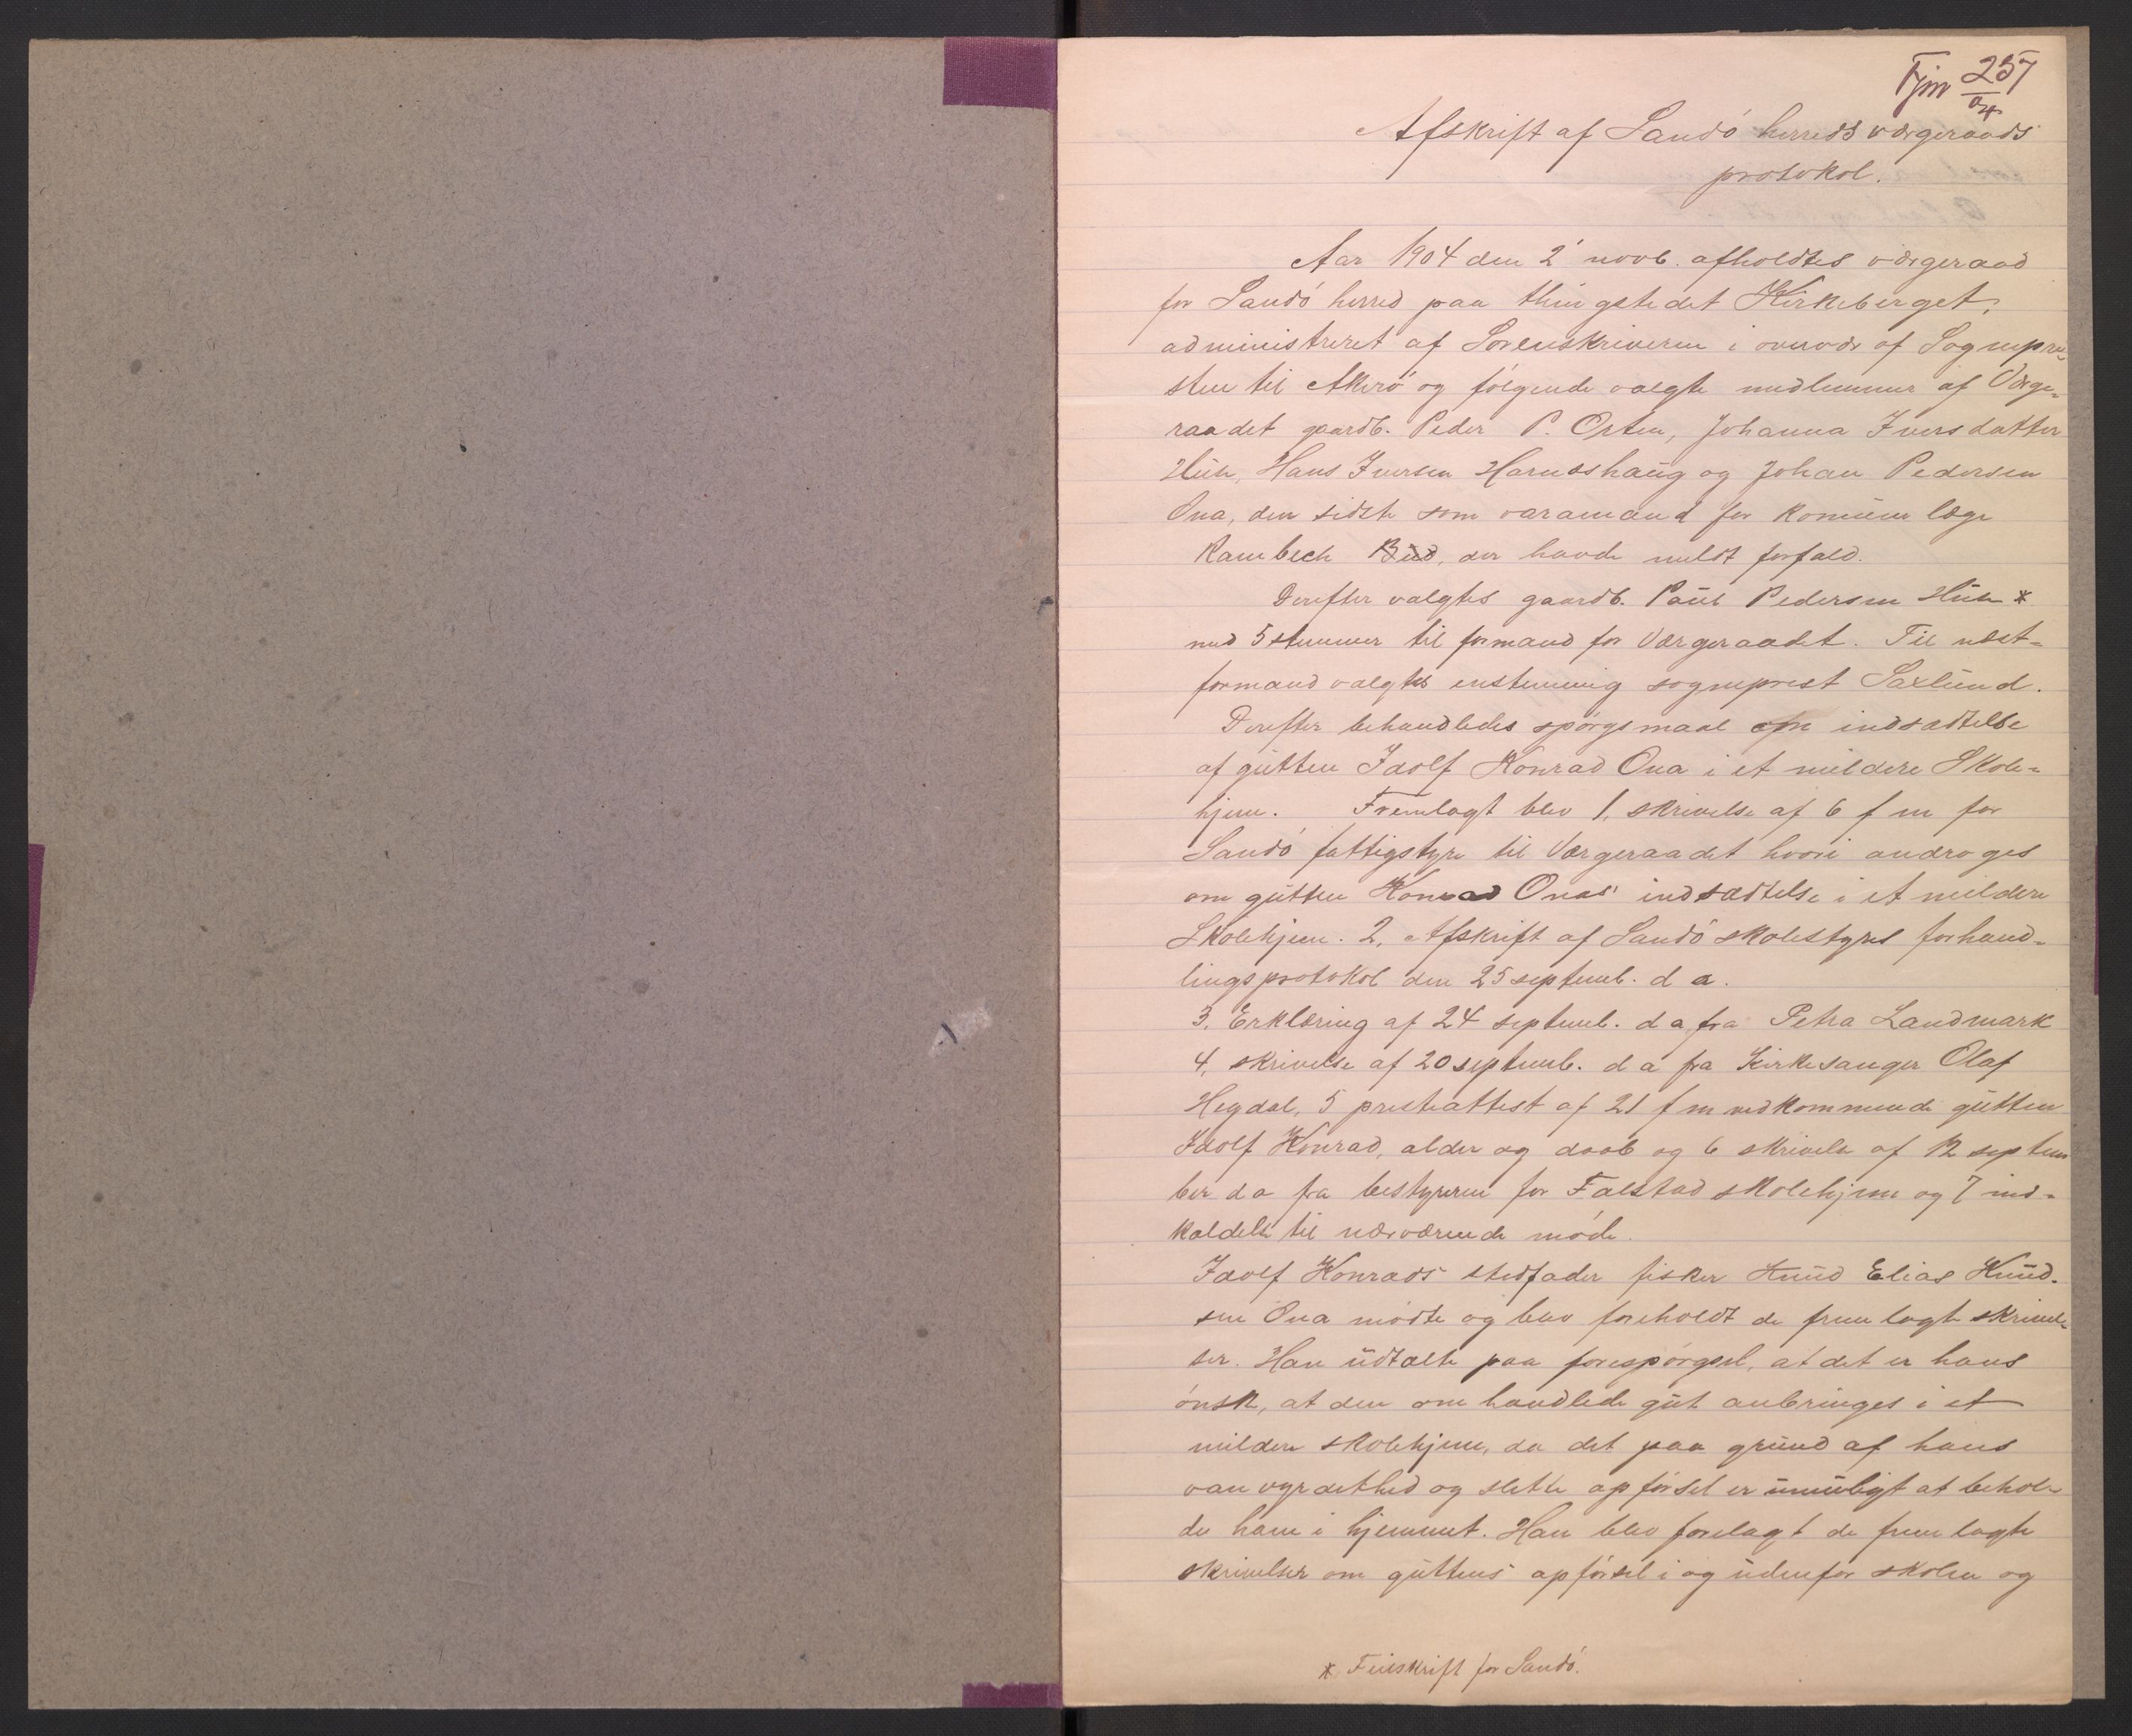 Fjm 257/04
Afskrift af Sandö herreds værgeraads
protokol.
Aar 1904 den 2' novb. afholdtes værgeraad
for Sandö herred paa thingstedet Kirkeberget,
administreret af Sorenskriveren i overvær af Sognepre-
sten til Akerö og følgende valgte medlemmer af Værge-
raadet gaardb. Peder P. Orten, Johanna Iversdatter
Huse, Hans Iversen Harnæshaug og Johan Pedersen
Ona, den sidste som varamand for kommunelæge
Rambech Bud, der havde meldt forfald.
Derefter valgtes gaardb. Paul Pedersen Huse *
med 5 stemmer til formand for Værgeraadet. Til næst-
formand valgtes enstemmig sogneprest Saxlund.
Derefter behandledes spörgsmaal om indsættelse
af gutten Idolf Konrad Ona i et mildere Skole-
hjem. Fremlagt blev 1, skrivelse af 6 f m for
Sandö fattigstyre til Værgeraadet hvori androges
om gutten Konrad Onas indsættelse i et mildere
Skolehjem. 2, Afskrift af Sandö skolestyres forhand-
lingsprotokol den 25 septemb. d a.
3, Erklæring af 24 septemb. d a fra Petra Landmark
4, skrivelse af 20 septemb. d a fra Kirkesanger Olaf
Hegdal, 5 presteattest af 21 f m vedkommende gutten
Idolf Konrad, alder og daab og 6 skrivelse af 12 septem
ber d a fra bestyreren for Falstad skolehjem og 7 ind-
kaldelse til nærværende möde.
Idolf Konrads stedfader fisker Knud Elias Knud-
sen Ona mödte og blev foreholdt de fremlagte skrivel-
ser. Han udtalte paa forespörgsel, at det er hans
önsk, at den omhandlede gut anbringes i et
mildere skolehjem, da det paa grund af hans
vanvyrdethed og slette opförsel er umuligt at behol-
de ham i hjemmet. Han blev forelagt de fremlagte
skrivelser om guttens opförsel i og udenfor skolen og
* Feilskrift for Sandö.